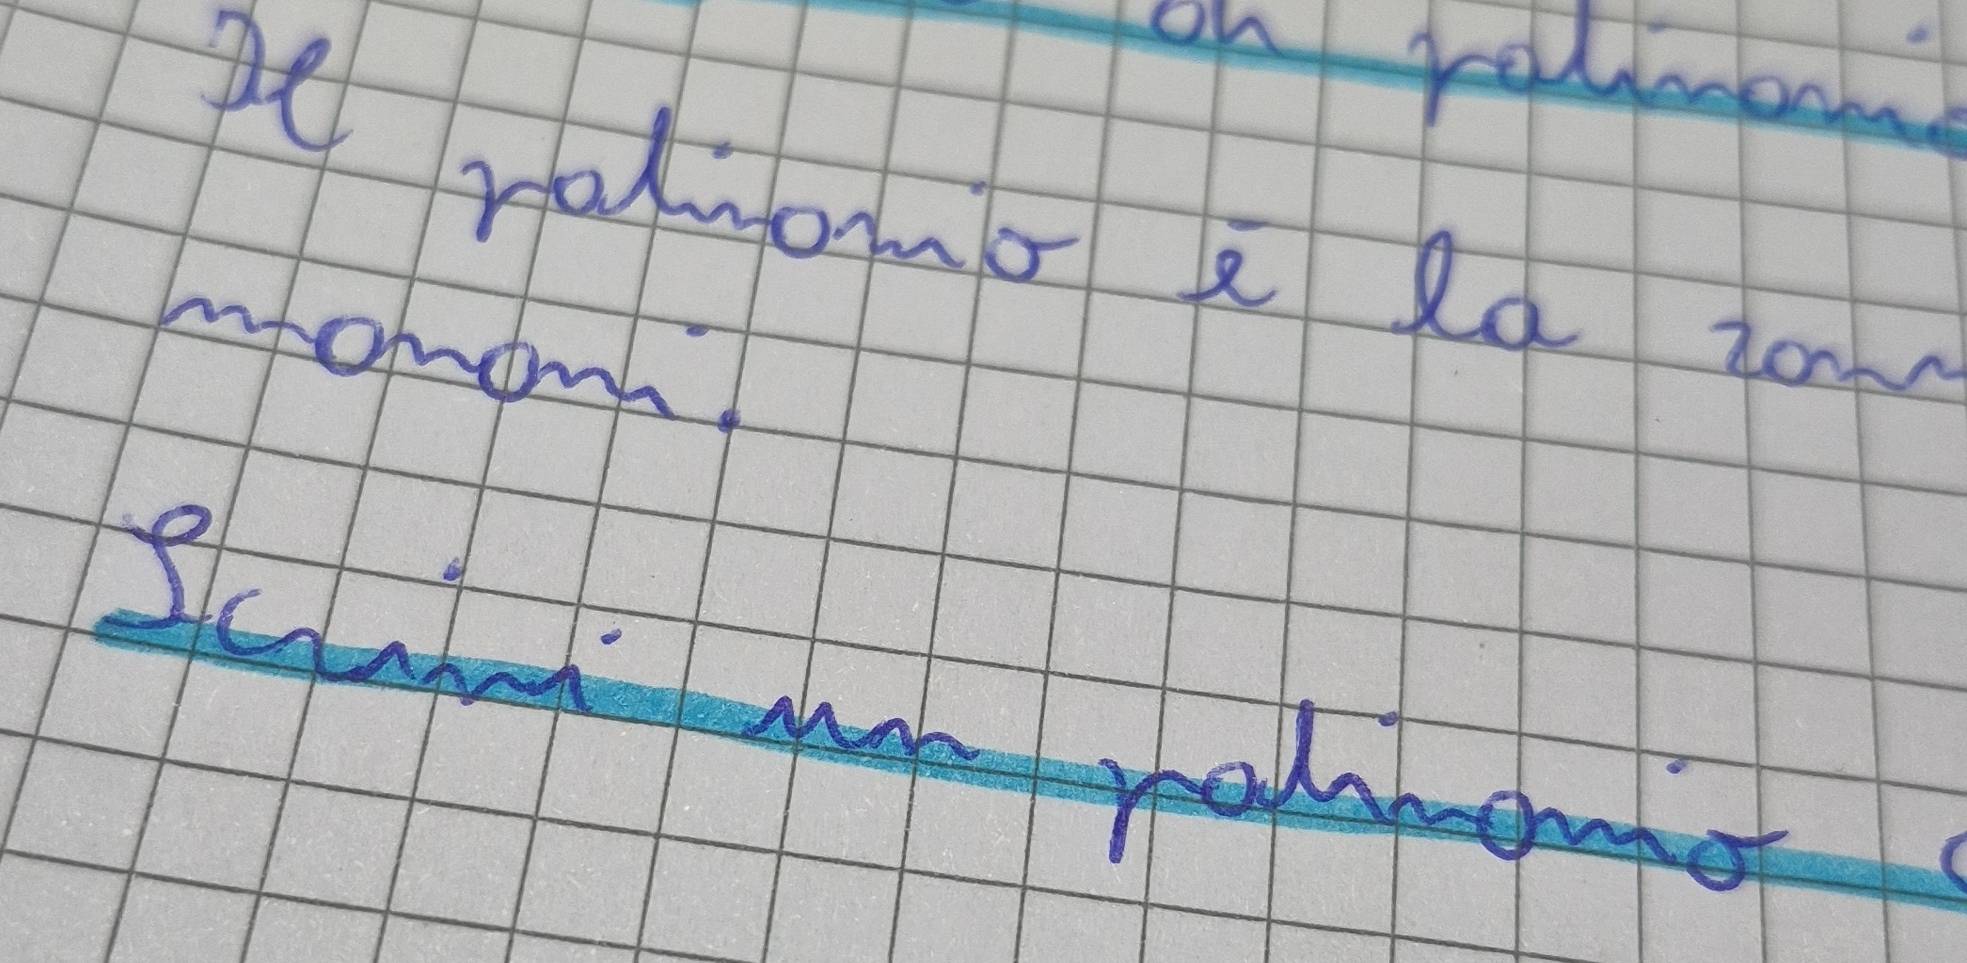 di polinomio
Il polinomio è la somm
monomi.
Scrivi un polinomio